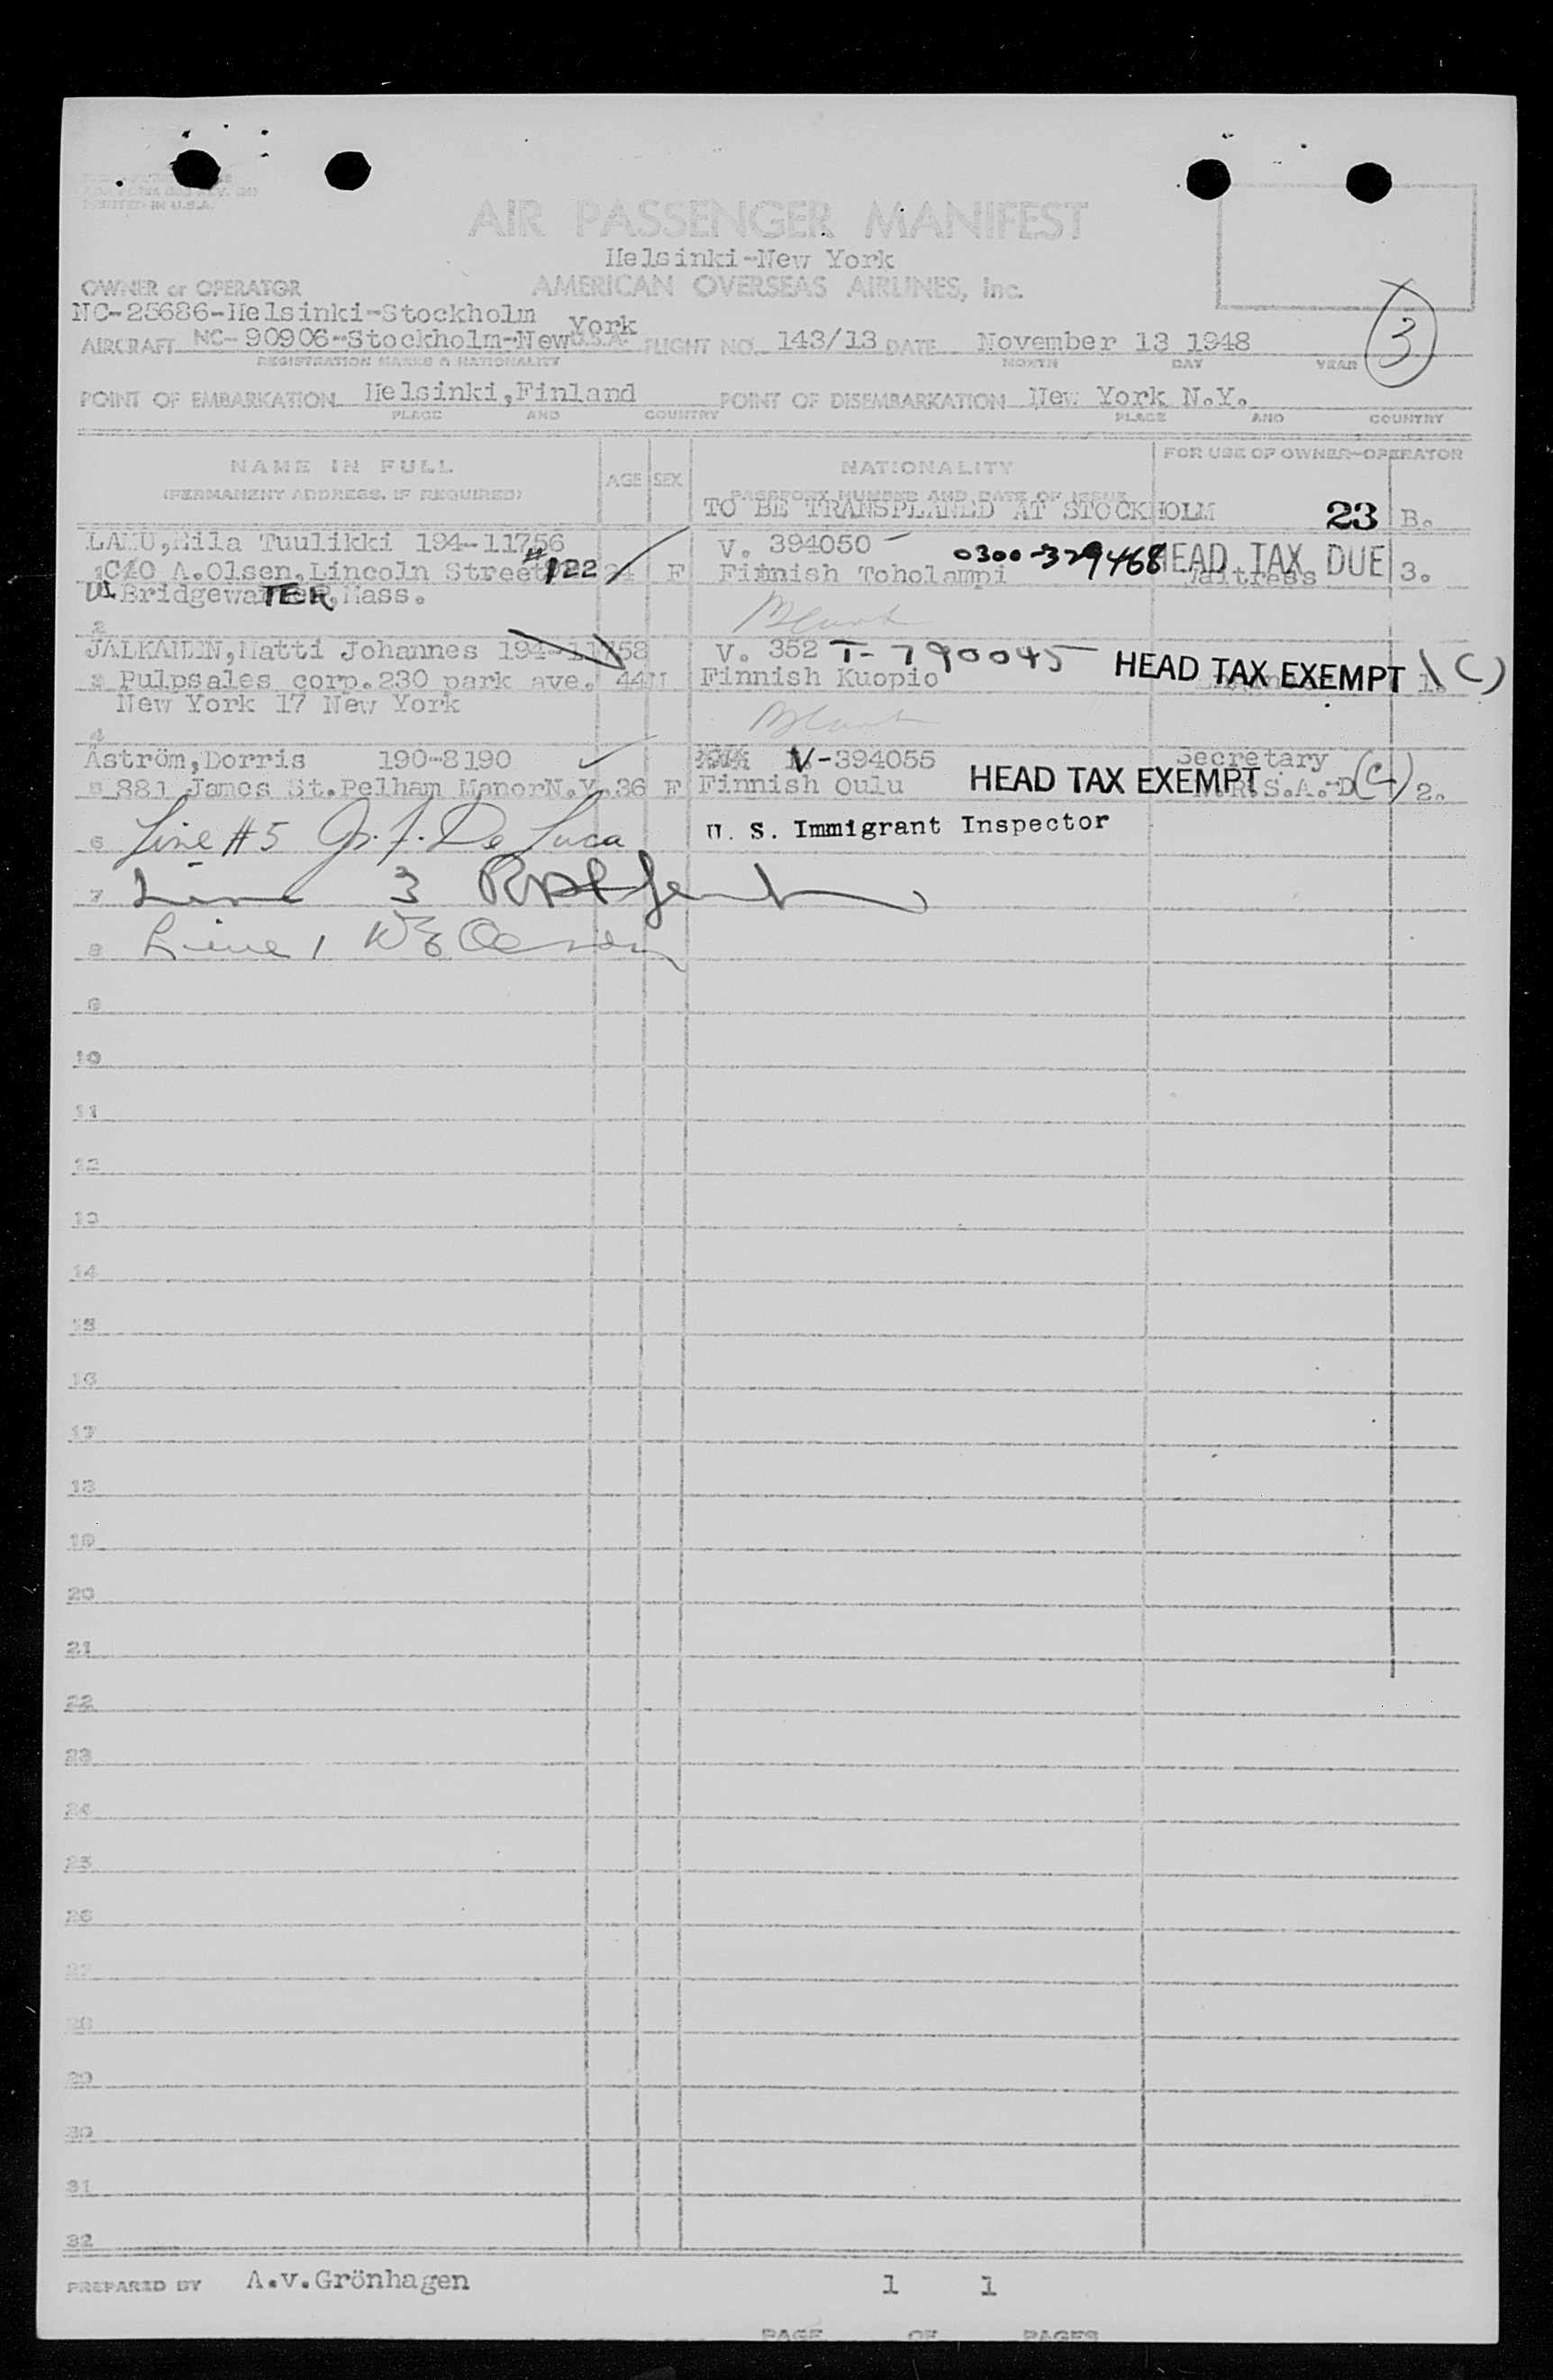 PRINTED IN U.S.A.
AIR PASSENGER MANIFEST
Helsinki-New York
OWNER or OPERATOR AMERICAN OVERSEAS AIRLINES, Inc.
NC-25686-Helsinki-Stockholm
AIRCRAFT NC-90906-Stockholm-New York U.S.A. FLIGHT NO. 143/13 DATE November 13 1948
3
REGISTRATION MARKS & NATIONALITY MONTH DAY YEAR
POINT OF EMBARKATION Helsinki,Finland POINT OF DISEMBARKATION New York N.Y.
PLACE AND COUNTRY PLACE AND COUNTRY
NAME IN FULL AGE SEX NATIONALITY FOR USE OF OWNER-OPERATOR
(PERMANENT ADDRESS, IF REQUIRED) PASSPORT NUMBER AND DATE OF ISSUE
TO BE TRANSPLANED AT STOCKHOLM 23 B.
Tuulikki 194-11756 V. 394050 0300-329468 HEAD TAX DUE
1 C/O A.Olsen,Lincoln Street #122 24 F Finnish Toholampi Waitress 3.
W Bridgewater TER,Mass.
2
JALKANEN,Matti Johannes 194-11758 V. 352 T-790045 HEAD TAX EXEMPT (C)
3 Pulpsales corp.230 park ave. 44 M Finnish Kuopio 1.
New York 17 New York
4
Åström,Dorris 190-8190 V-394055 Secretary
5 881 James St.Pelham Manor N.Y. 36 F Finnish Oulu HEAD TAX EXEMPT S.A.-D (C) 2.
6 Line #5 De Luca U. S. Immigrant Inspector
7 Line 3
8 Line 1
9
10
11
12
13
14
15
16
17
18
19
20
21
22
23
24
25
26
27
28
29
30
31
32
PREPARED BY A.v.Grönhagen 1 1
PAGE OF PAGES